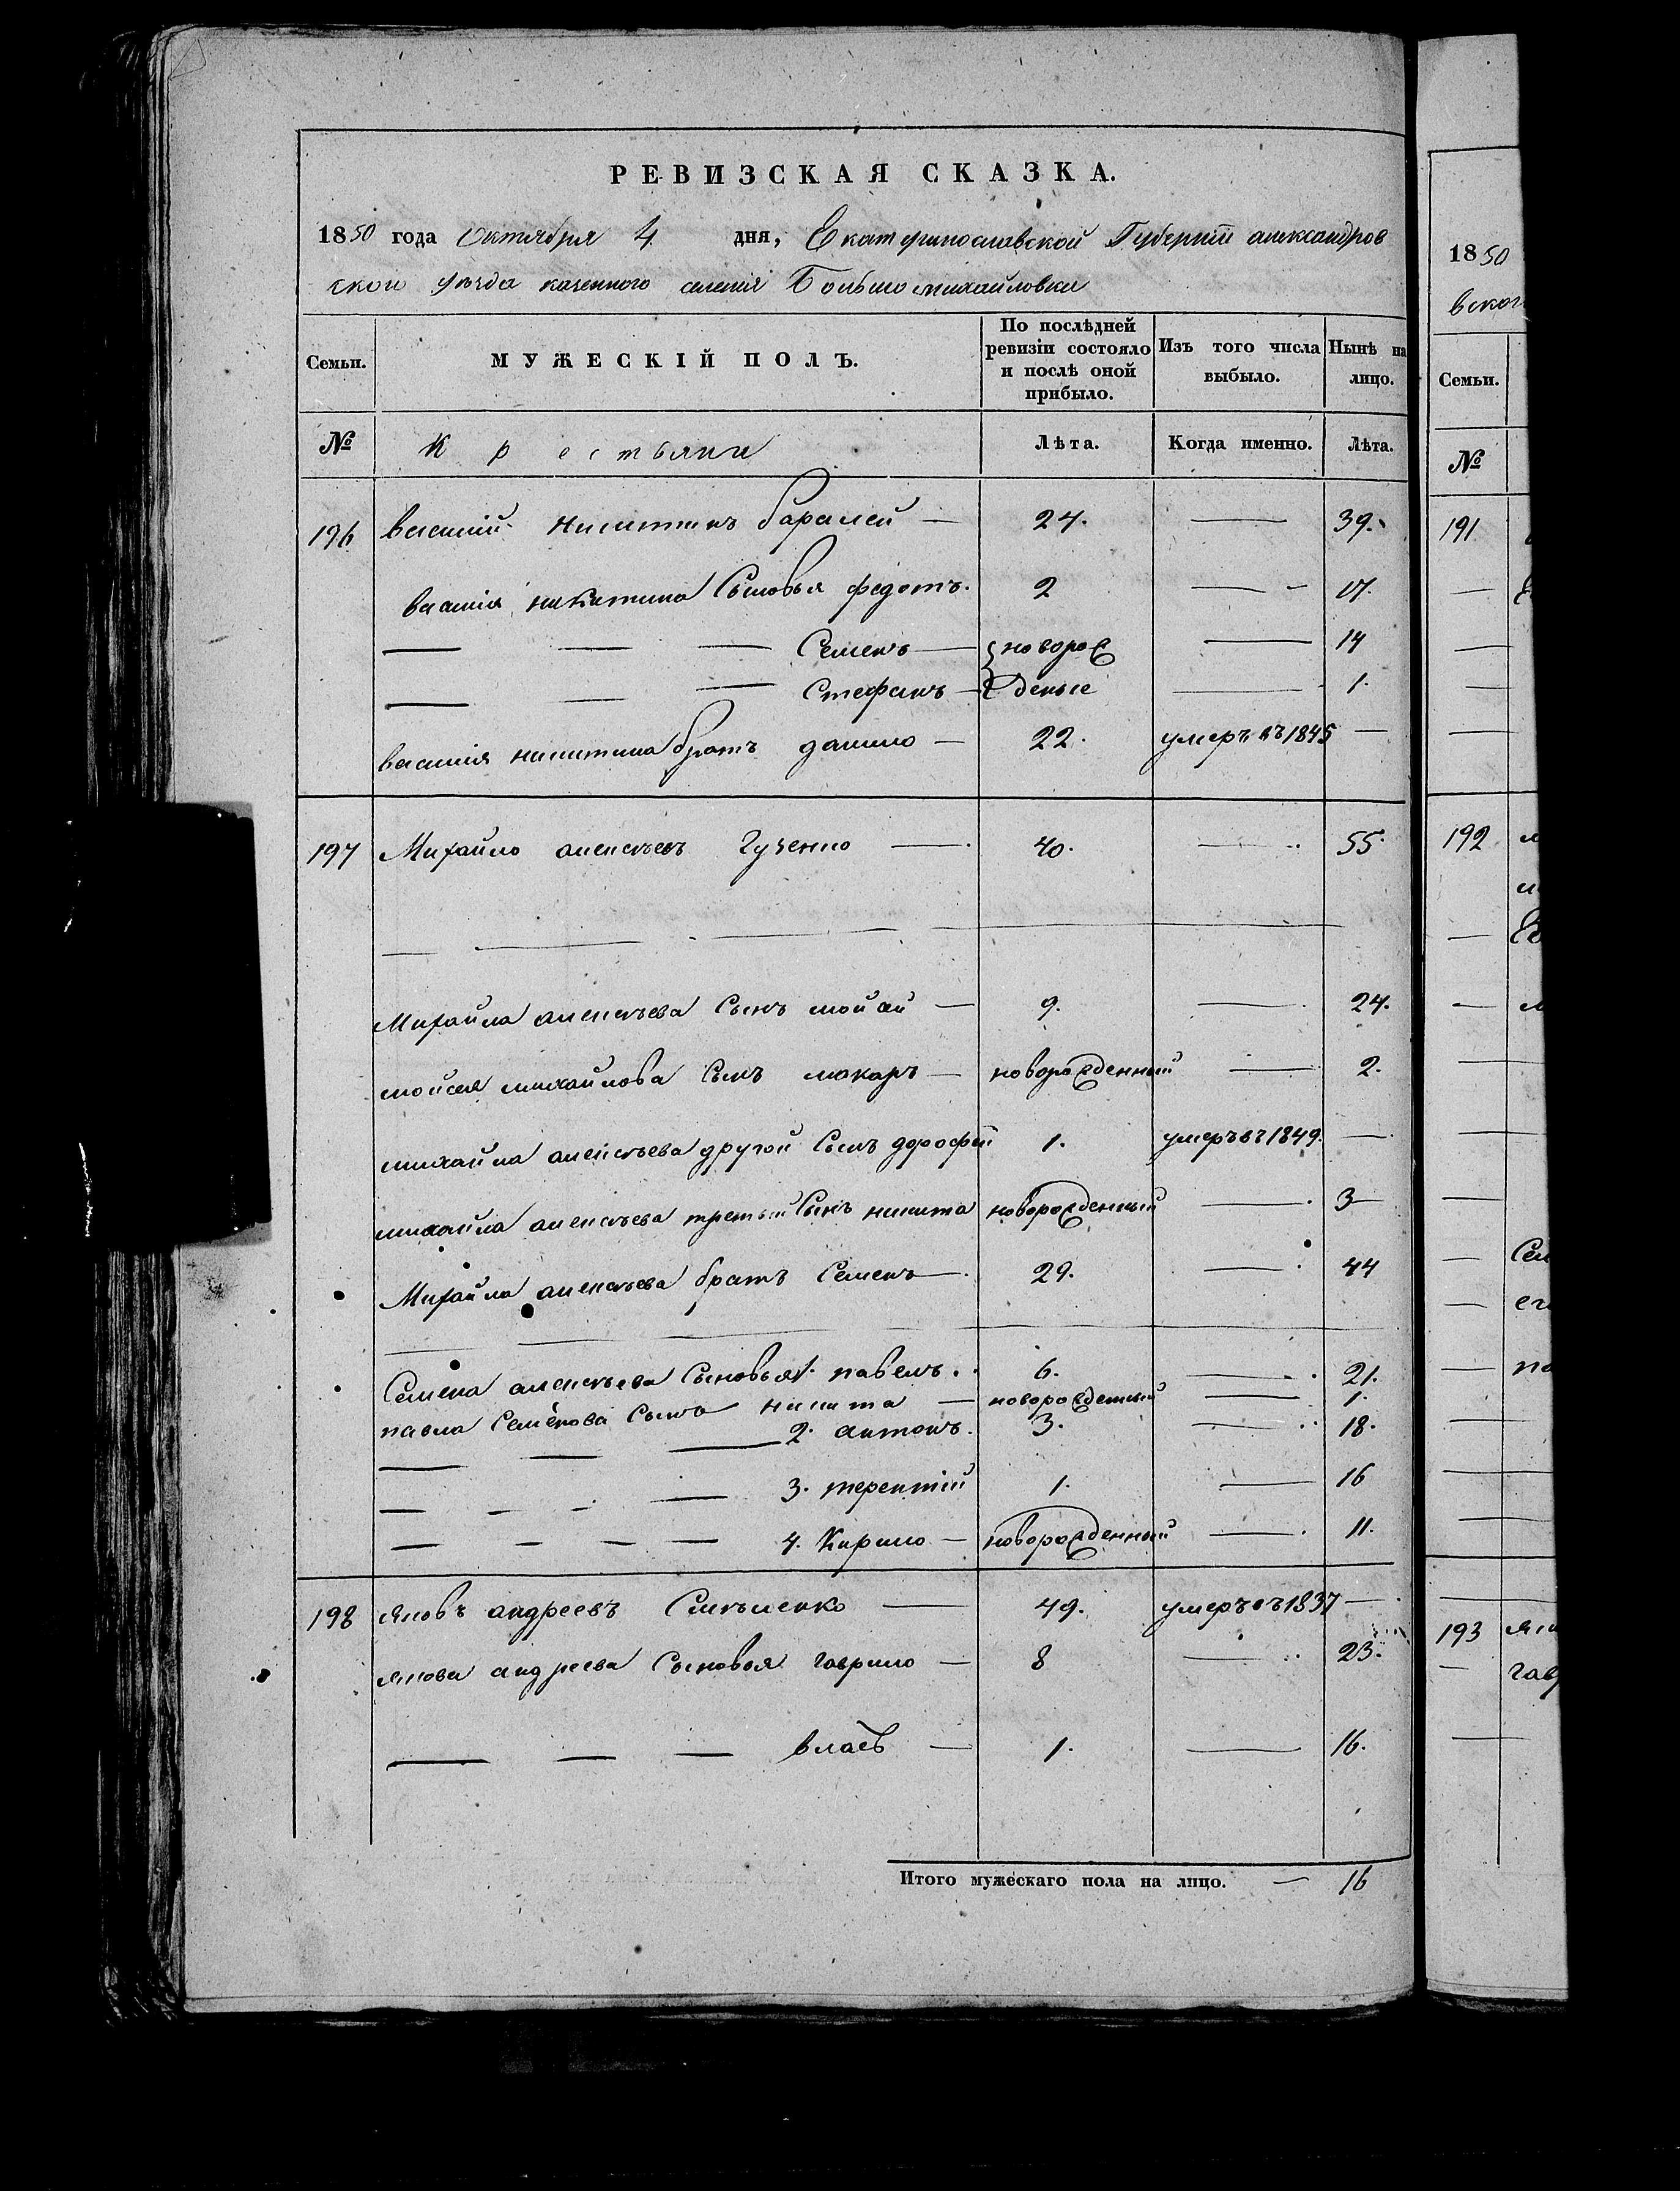 РЕВИЗСКАЯ СКАЗКА.
1850 года Октября 4 дня, Екатеринославской Губернии александров
ского уѣзда казенного селенія Большомихайловки
Семьи. МУЖЕСКІЙ ПОЛЪ. По послѣдней ревизіи состояло и послѣ оной прибыло. Изъ того числа выбыло. Нынѣ на лицо.
№ Крестьяни Лѣта. Когда именно. Лѣта.
196 василій никитинъ — 24. — 39.
василія никитина Сыновья федотъ. 2 — 17.
— — — Семенъ — новорож — 14
— — — Стефанъ — деные — 1.
василія никитина братъ данило — 22. умеръ въ 1845 —
197 Михайло алексѣевъ Гученко — 40. — 55.
Михайла алексѣева Сынъ мойсей — 9. — 24.
мойсея михайлова Сынъ макаръ — новорожденный — 2.
михайла алексѣева другой Сынъ дорофей 1. умеръ въ 1849. —
михайла алексѣева третый Сынъ никита новорожденный — 3
Михайла алексѣева братъ Семенъ — 29. — 44
Семена алексѣева Сыновья 1. павелъ. 6. — 21.
павла Семенова Сынъ никита — новорожденный — 1.
— — — 2. антонъ. 3. — 18.
— — — 3. терентій 1. — 16
— — — — 4. Кирило — новорожденный — 11.
198 яковъ андреевъ — 49. умеръ въ 1837 —
якова андреева Сыновья гаврило — 8 — 23.
— — — власъ — 1. — 16.
Итого мужескаго пола на лицо. — 16
1850
вског
Семьи.
№
191
192
193
гав